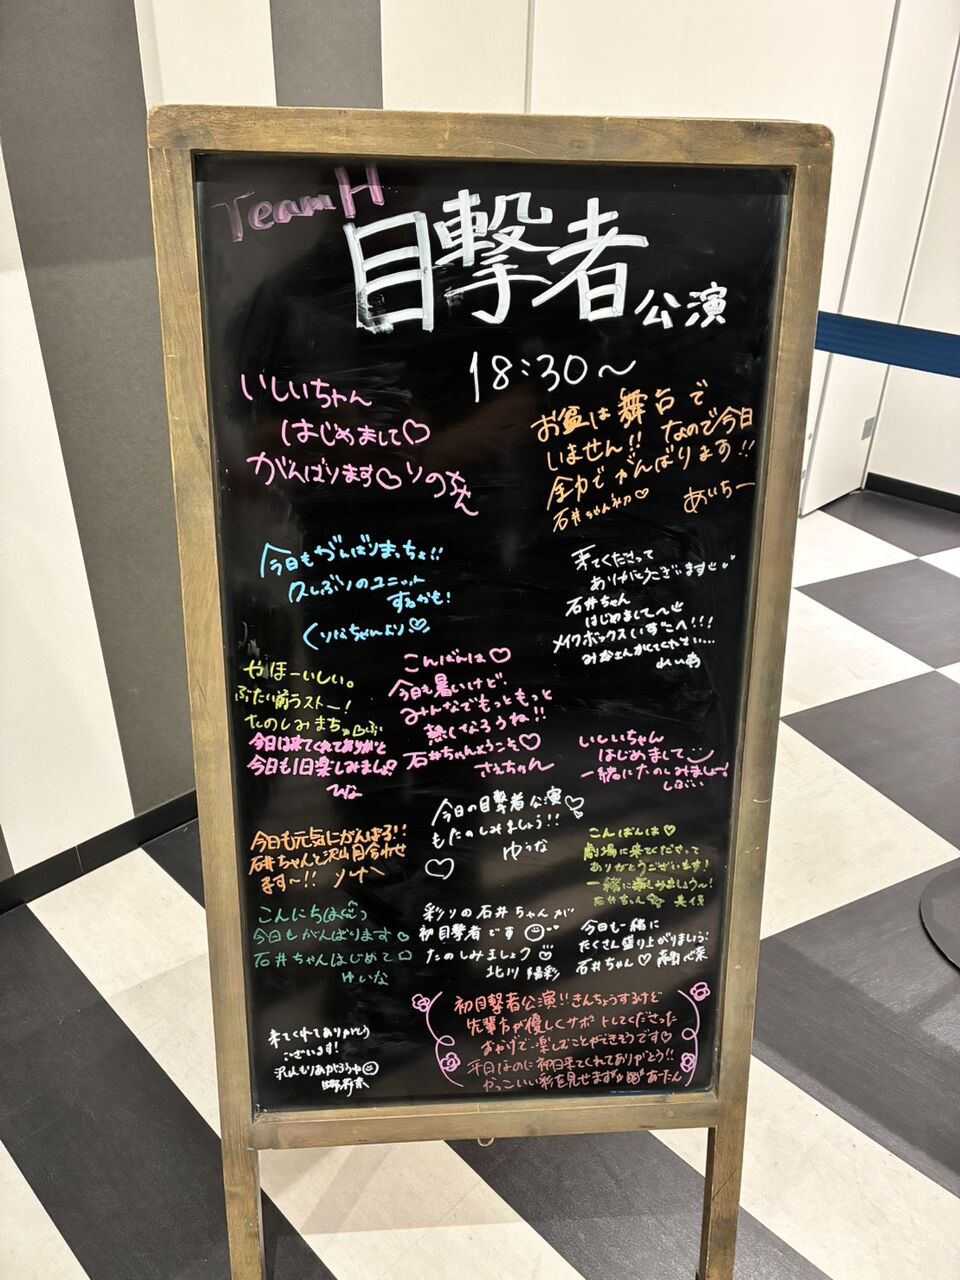 Team H
目撃者
公演
18:30～
いしいちゃん
はじめまして♡
がんばります♡りのちゃん
お盆は舞台で
いません!! なので今日
全力でがんばります!!
石井ちゃん初♡ あいちー
今日もがんばりまっちょ!!
久しぶりのユニット
するかも!
くりなちゃんより
来てくださって
ありがとうございます
石井ちゃん
はじめまして
メイクボックスいずこへ!!!
みなさんがしてくれてい....
れいあ
やほーいしい。
ぶたい前ラストー!
たのしみまち
今日は来てくれてありがと
今日も1日楽しみましょ
ひな
こんばんは♡
今日も暑いけど
みんなでもっともっと
熱くなろうね!!
石井ちゃんようこそ♡
さえちゃん
いしいちゃん
はじめまして
一緒にたのしみましょ
しぶい
今日の目撃者公演
もたのしみましょう!!
ゆうな
今日も元気にがんばる!!
石井ちゃんと沢山目合わせ
ます〜!!
こんばんは♡
劇場に来てくださって
ありがとうございます!
一緒に楽しみましょう〜!
石井ちゃん
こんにちは
今日もがんばります
石井ちゃんはじめて
ゆいな
彩リの石井ちゃんが
初目撃者です
たのしみましょう
北川 陽彩
今日も一緒に
たくさん盛り上がりましょう
石井ちゃん♡
来てくれてありがとう
ございます!
沢山もりあがろうね
初目撃者公演!!きんちょうするけど
先輩方が優しくサポートしてくださった
おかげで、楽しむことができそうです♡
平日なのに初日来てくれてありがとう!!
かっこいい彩を見せます あーたん